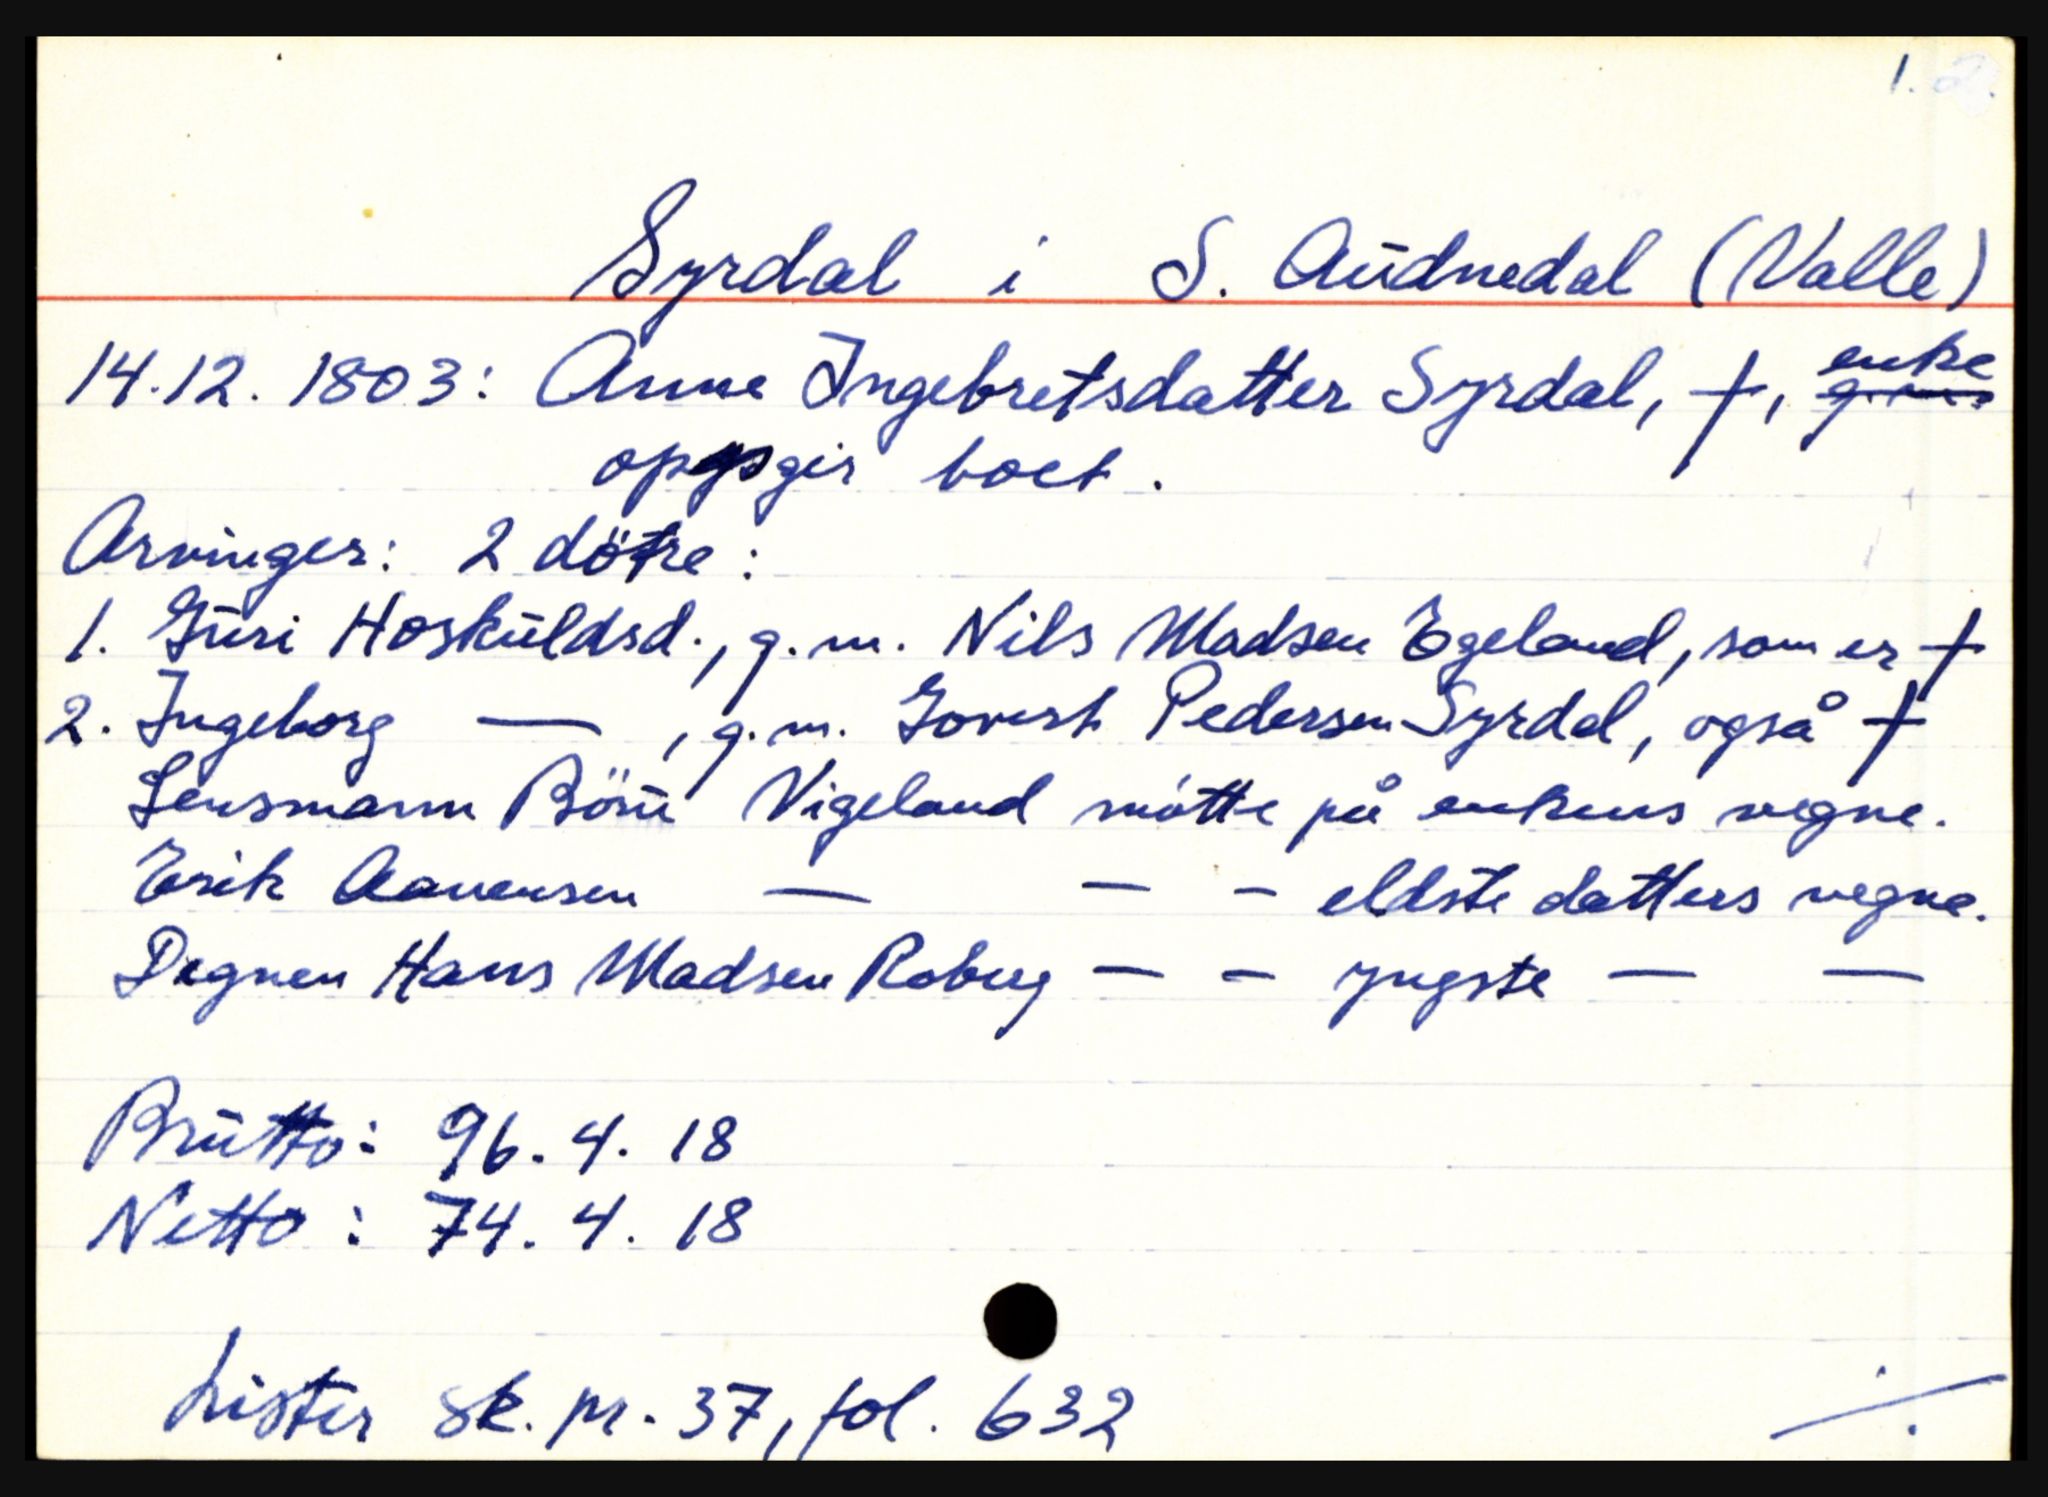 1. 2.
Syrdal i S. Audnedal (Valle)
14.12. 1803: Anne Ingebretsdatter Syrdal, †, enke
oppgir boet.
Arvinger: 2 dötre:
1. Guri Hoskuldsd., g.m. Nils Madsen Egeland, som er †
2. Ingeborg — , g.m. Govert Pedersen Syrdal, også †
Lensmann Böru Vigeland møtte på enkens vegne.
Erik Aanensen — — – eldste datters vegne.
Degnen Hans Madsen Roberg — – yngste — —
Brutto: 96. 4. 18
Netto: 74. 4. 18
Lister sk. pr. 37, fol. 632
./.